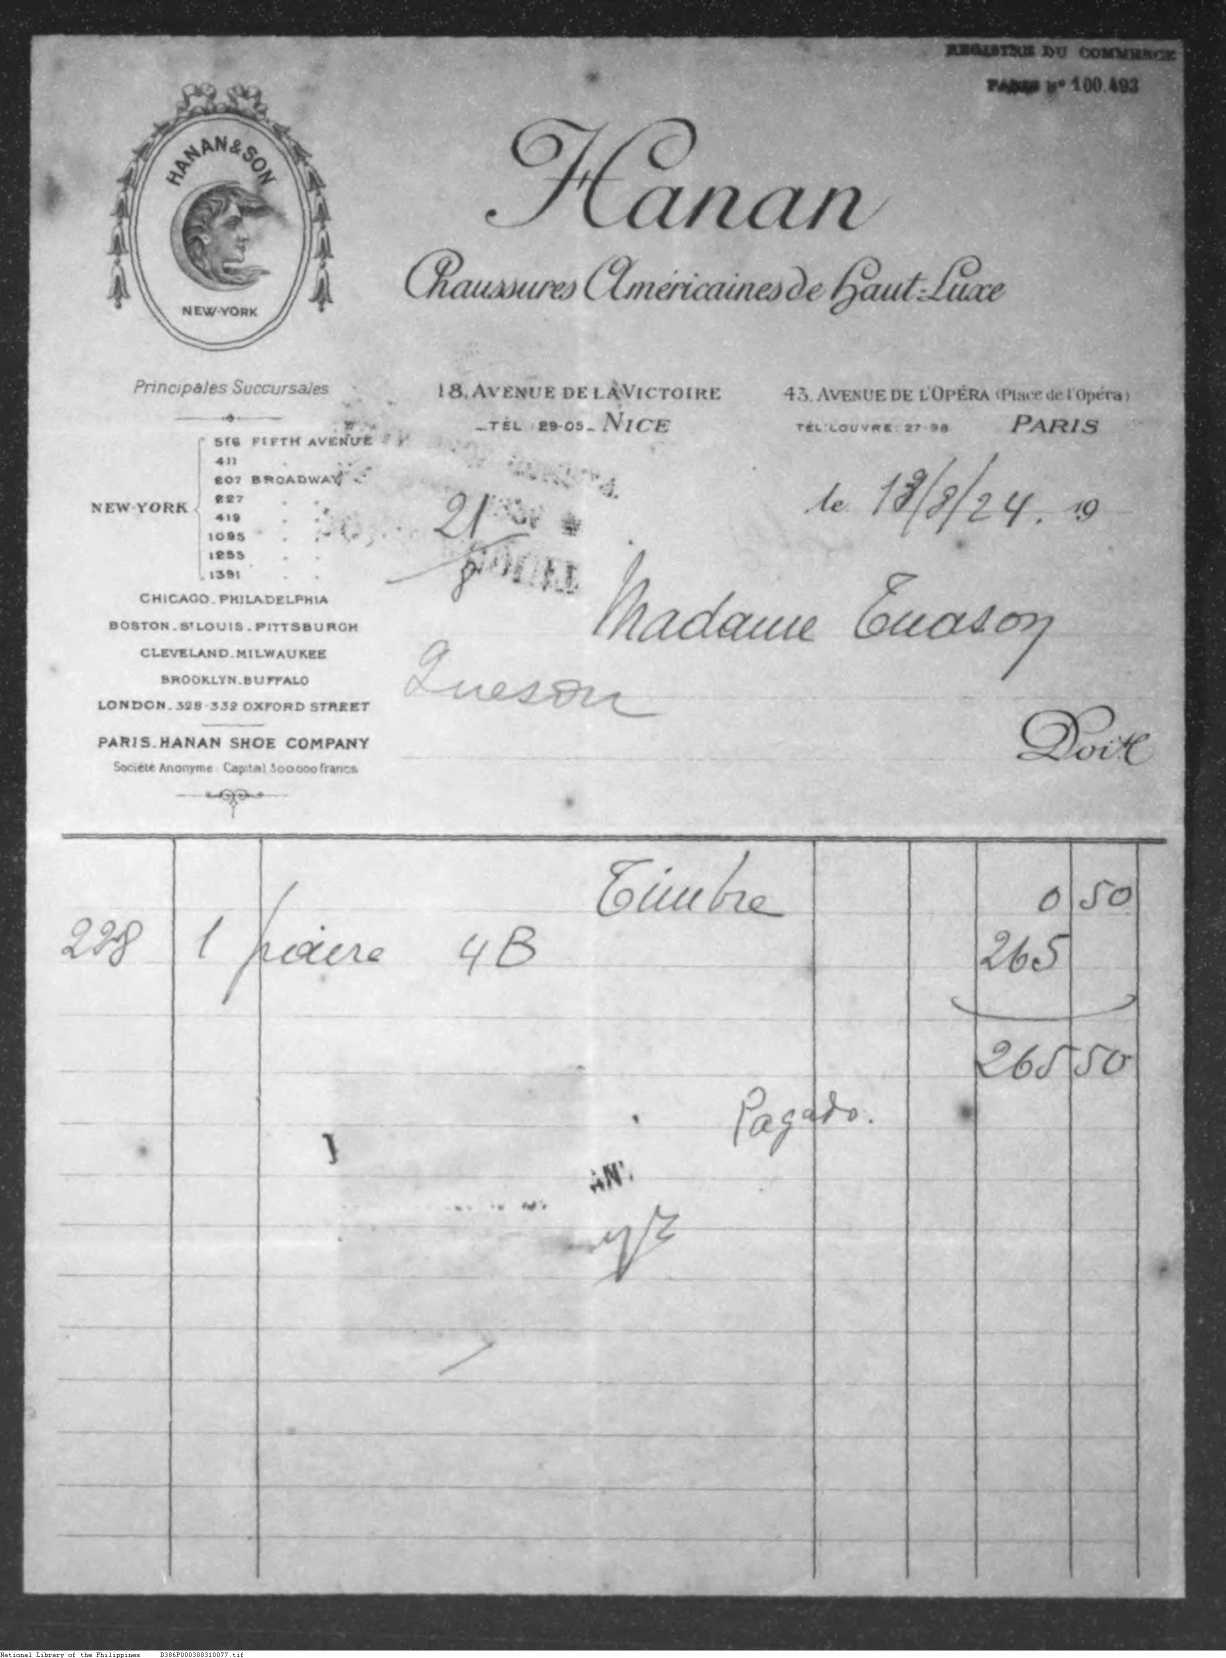 REGISTRE DU COMMERCE
PARIS Nº 100.493
HANAN & SON
NEW-YORK
Hanan
Chaussures Américaines de Haut-Luxe
Principales Succursales
18, AVENUE DE LA VICTOIRE
TÉL : 29-05 - NICE
43, AVENUE DE L'OPÉRA (Place de l'Opéra)
TÉL: LOUVRE : 27-98 PARIS
NEW-YORK
516 FIFTH AVENUE
411
607 BROADWAY
227
419
1095
1255
1391
CHICAGO. PHILADELPHIA
BOSTON. ST LOUIS. PITTSBURGH
CLEVELAND. MILWAUKEE
BROOKLYN. BUFFALO
LONDON. 328-332 OXFORD STREET
PARIS. HANAN SHOE COMPANY
Société Anonyme : Capital 300.000 francs
le 13/8/24. 19
21/8
Madame Tuason
Queson
Doit
Timbre 0 50
228 1 paire 4B 265
265 50
Pagado.